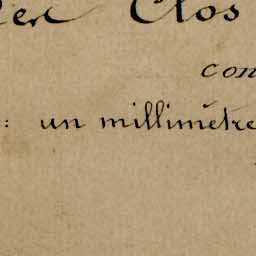 Clos
con
: un millimètre